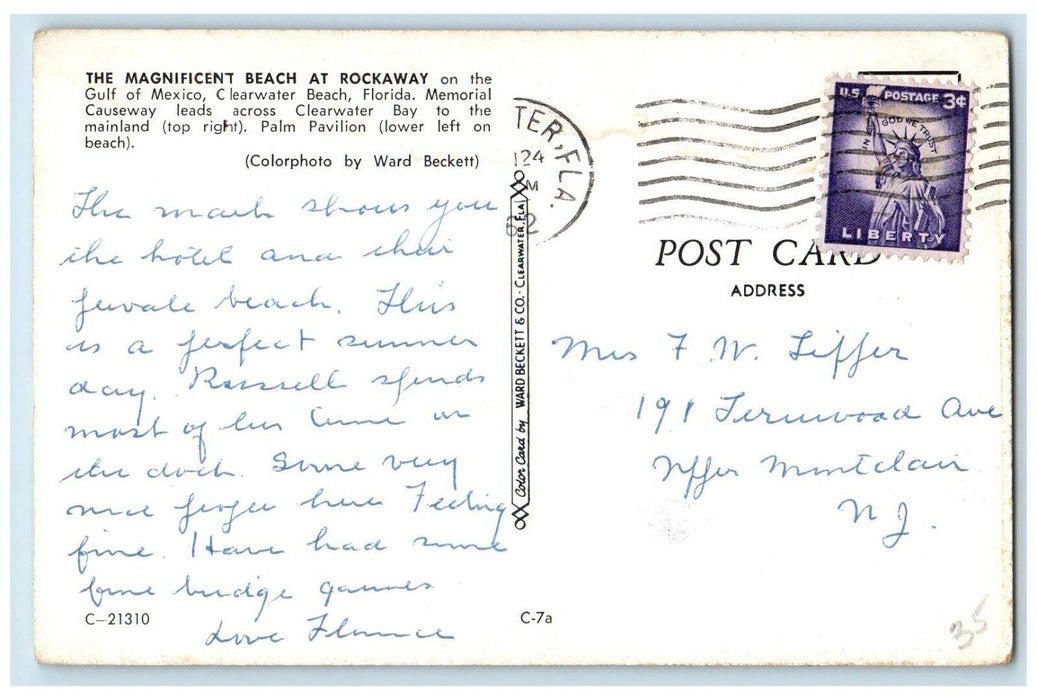 THE MAGNIFICENT BEACH AT ROCKAWAY on the
Gulf of Mexico, Clearwater Beach, Florida. Memorial
Causeway leads across Clearwater Bay to the
mainland (top right). Palm Pavilion (lower left on
beach).
(Colorphoto by Ward Beckett)
The mark shows you
the hotel and their
private beach. This
is a perfect summer
day. Russell spends
most of his time on
the dock. Some very
nice people here Feeling
fine. Have had some
fine bridge games
Love Florence
C-21310
Color Card by WARD BECKETT & CO. - CLEARWATER, FLA.
C-7a
TER, FLA.
124
M
62
U.S. POSTAGE 3¢
IN GOD WE TRUST
LIBERTY
POST CARD
ADDRESS
Mrs F. W.
191 Fernwood Ave
Upper Montclair
N J.
35